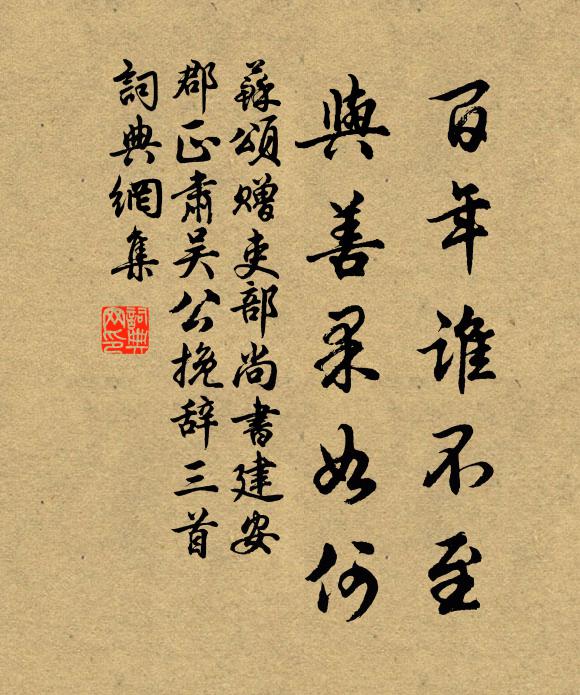 百年谁不至
與善果如何
蘇頌贈吏部尚書建安
郡正肅吴公挽辞三首
詞典網集
詞典網印